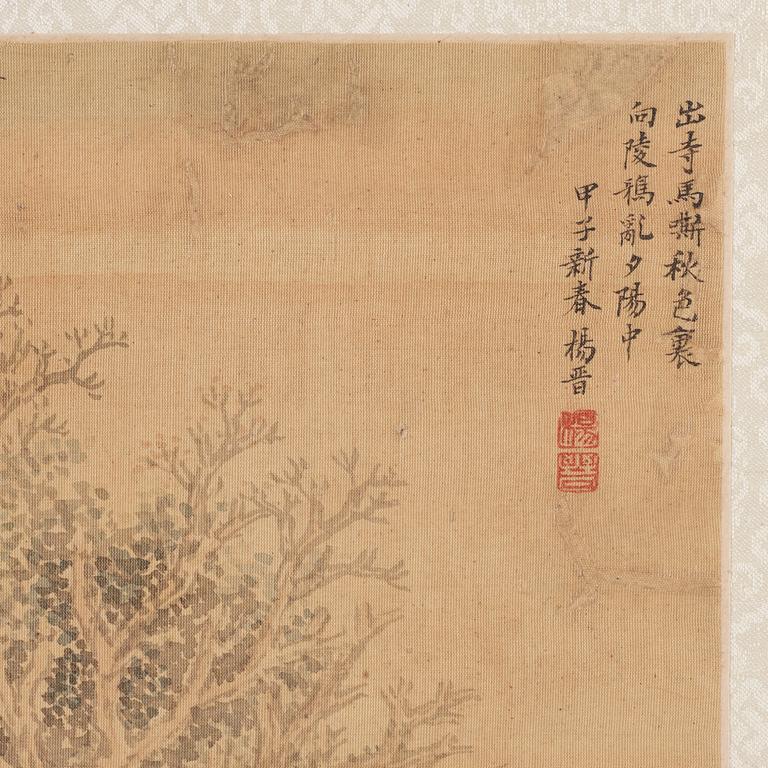 出寺馬嘶秋色裏
向陵鴉亂夕陽中
甲子新春 楊晋
楊
晋